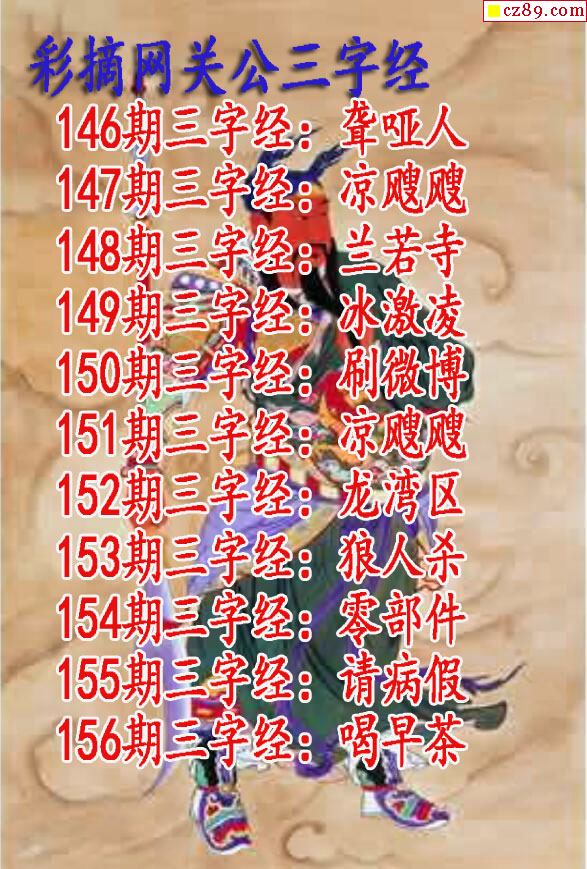 cz89.com
彩摘网关公三字经
146期三字经：聋哑人
147期三字经：凉飕飕
148期三字经：兰若寺
149期三字经：冰激凌
150期三字经：刷微博
151期三字经：凉飕飕
152期三字经：龙湾区
153期三字经：狼人杀
154期三字经：零部件
155期三字经：请病假
156期三字经：喝早茶